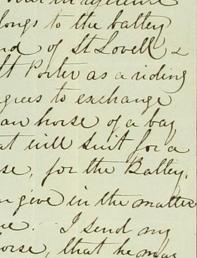 longs to the battery
of Lt Lovell &
Lt Porter as a riding
agrees to exchange
an horse of a bay
at will suit for a
se, for the Battey.
n give in the matter
I send my
orse, that he may